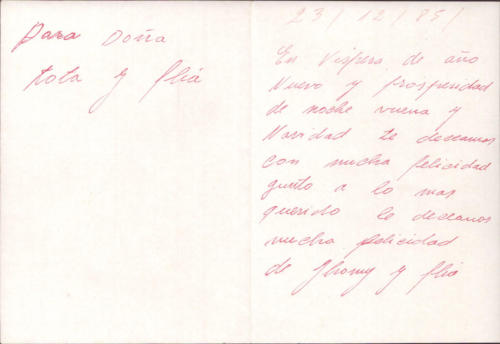 Para Doña
tota y fliá
23/12/85/
En Vispera de año
Nuevo y prosperidad
de noche vuena y
Navidad te deceamos
con mucha felicidad
gunto a lo mas
querido le deceamos
mucha felicidad
de Jhomy y fliá